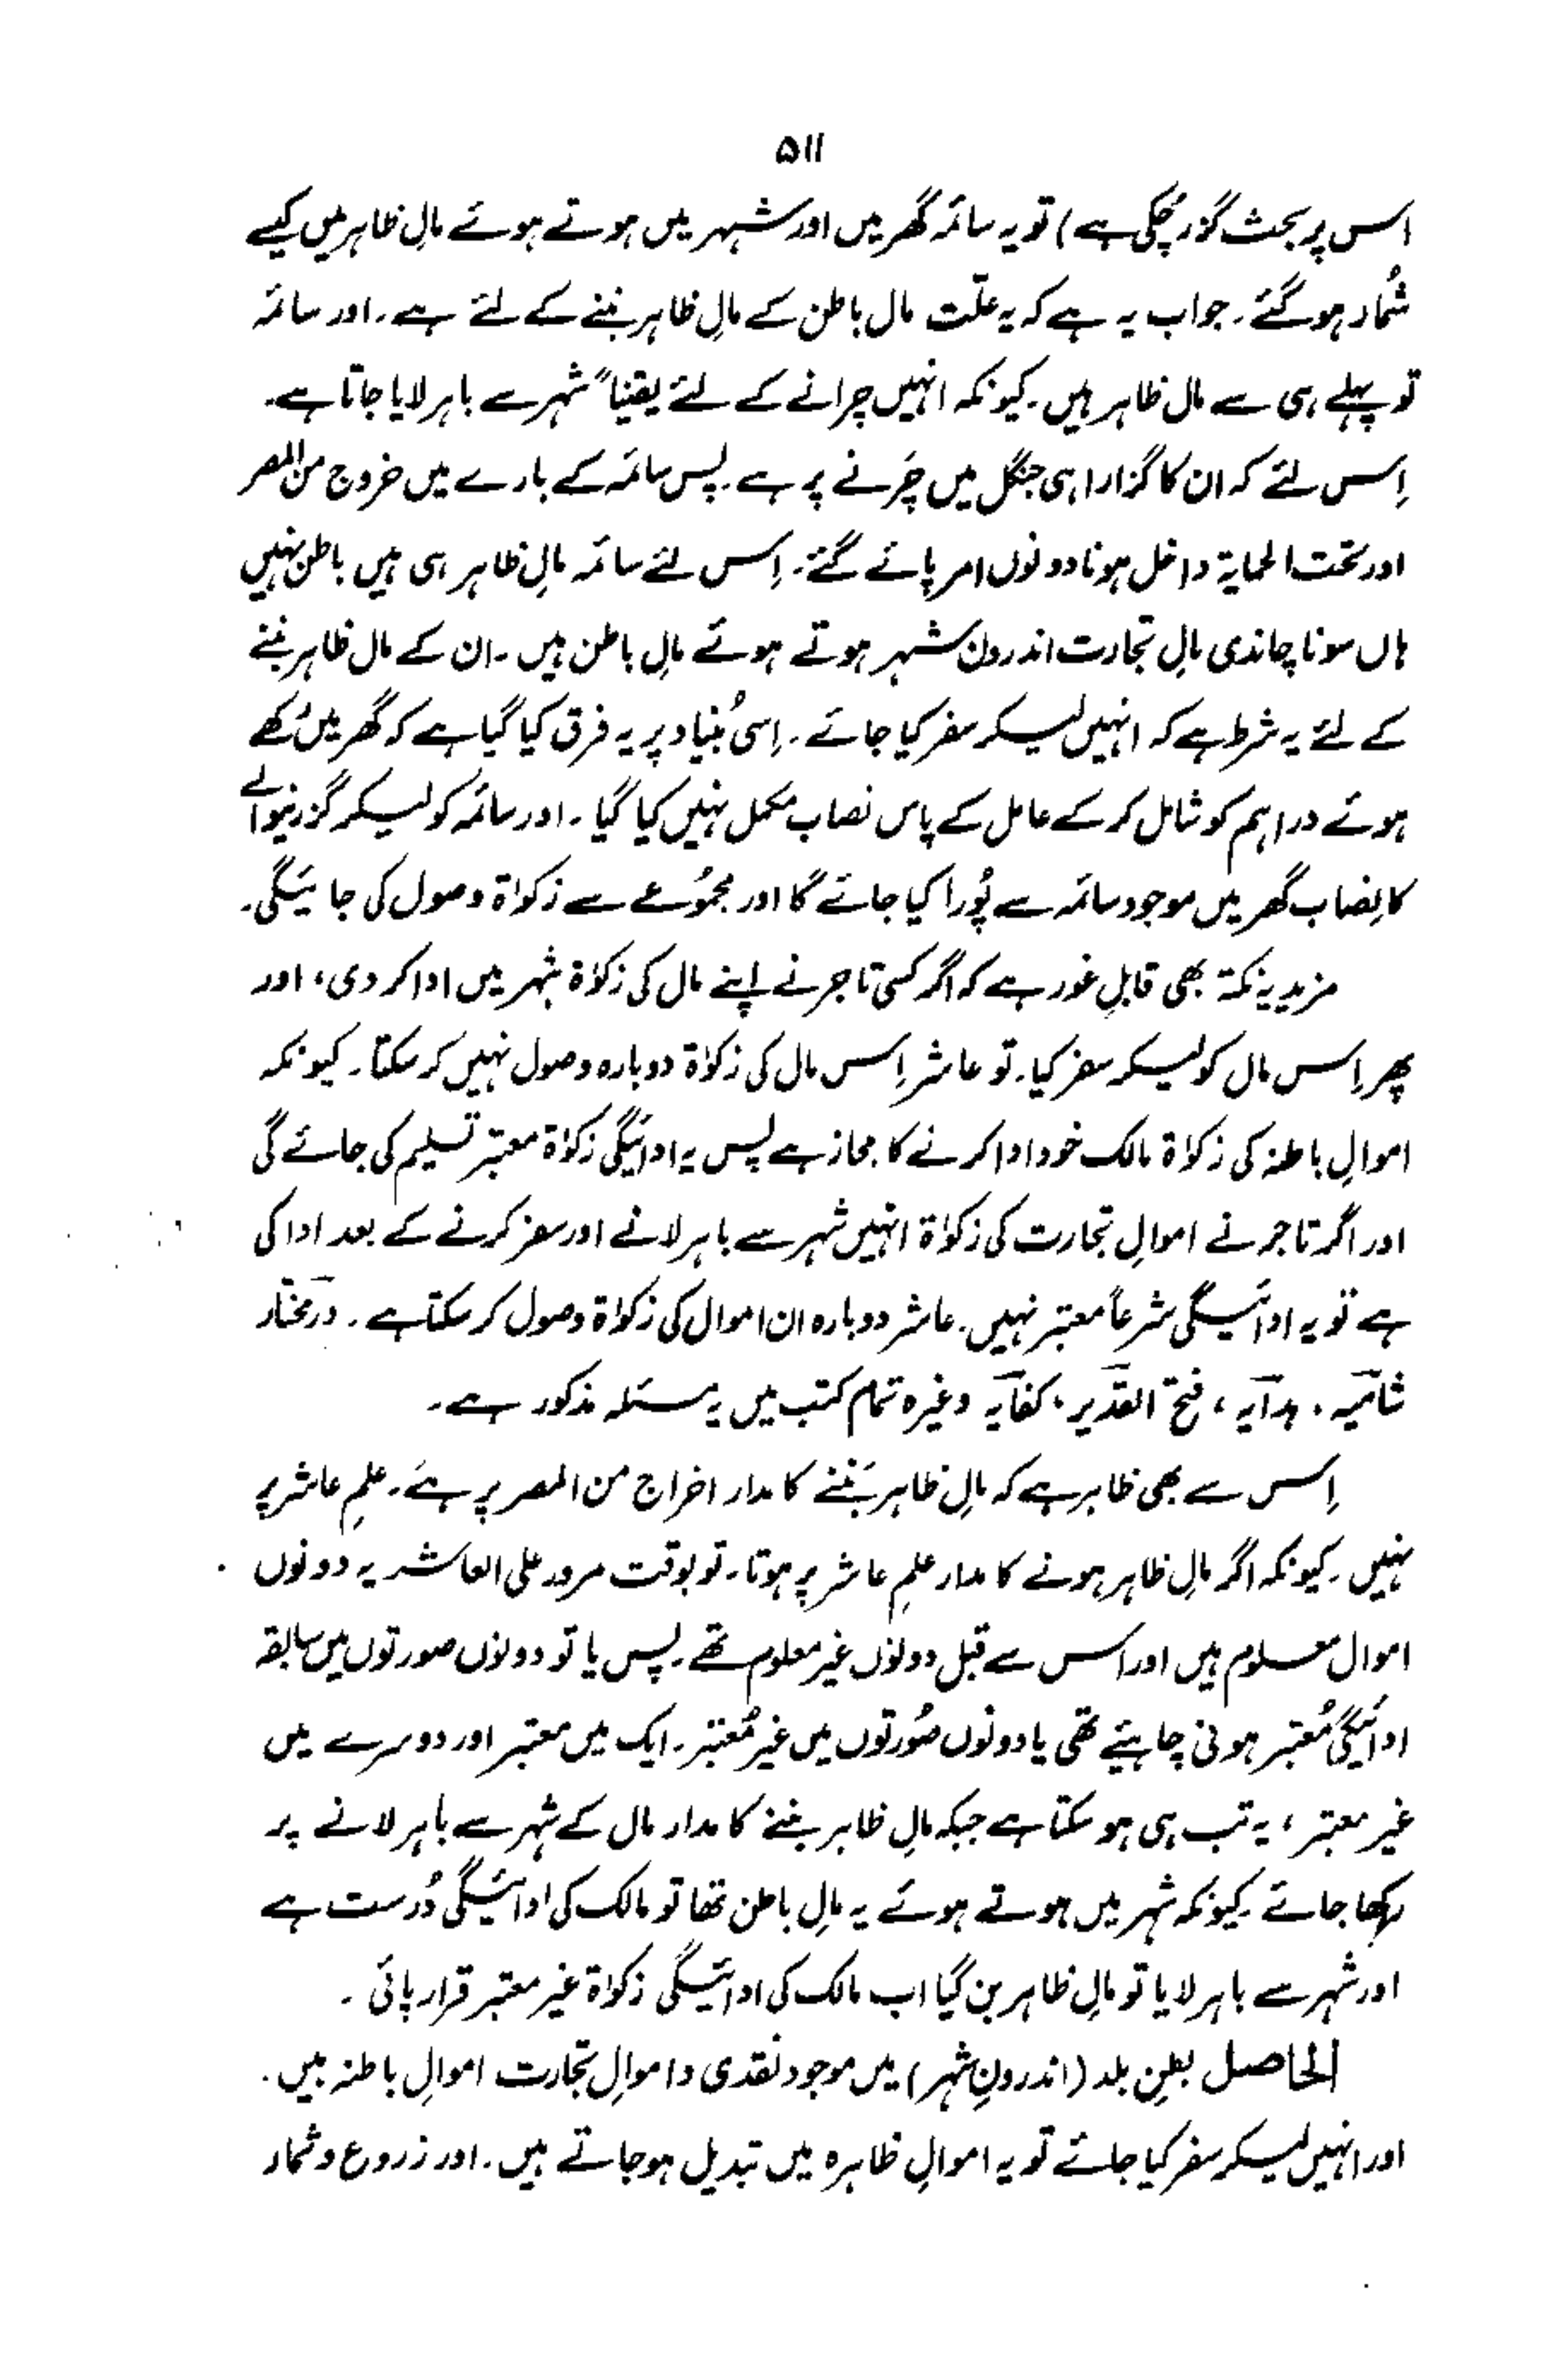 ۵۱۱
اس پر بحث گزر چُکی ہے) تو یہ سائمہ گھر میں اور شہر میں ہوتے ہوئے مالِ ظاہر میں کیسے
شُمار ہو گئے۔ جواب یہ ہے کہ یہ علّت مال باطن کے مالِ ظاہر بننے کے لئے ہے۔ اور سائمہ
تو پہلے ہی سے مال ظاہر ہیں۔ کیونکہ انہیں چرانے کے لئے یقیناً شہر سے باہر لایا جاتا ہے۔
اِس لئے کہ ان کا گزارا ہی جنگل میں چَرنے پر ہے۔ پس سائمہ کے بارے میں خروج من المصر
اور تحت الحمایۃ داخل ہونا دونوں امر پائے گئے۔ اِس لئے سائمہ مالِ ظاہر ہی ہیں باطن نہیں
ہاں سونا چاندی مالِ تجارت اندرون شہر ہوتے ہوئے مالِ باطن ہیں۔ ان کے مال ظاہر بننے
کے لئے یہ شرط ہے کہ انہیں لیکر سفر کیا جائے۔ اِسی بُنیاد پر یہ فرق کیا گیا ہے کہ گھر میں رکھے
ہوئے دراہم کو شامل کر کے عامل کے پاس نصاب مکمل نہیں کیا گیا۔ اور سائمہ کو لیکر گزرنیوالے
کا نِصاب گھر میں موجود سائمہ سے پُورا کیا جائے گا اور مجموُعے سے زکواۃ وصول کی جائیگی۔
مزید یہ نکتہ بھی قابلِ غور ہے کہ اگر کسی تاجر نے اپنے مال کی زکوٰۃ شہر میں ادا کر دی، اور
پھر اِس مال کو لیکر سفر کیا۔ تو عاشر اِس مال کی زکوٰۃ دوبارہ وصول نہیں کر سکتا۔ کیونکہ
اموالِ باطنہ کی زکواۃ مالک خود ادا کرنے کا مجاز ہے پس یہ ادائیگی زکوٰۃ معتبر تسلیم کی جائے گی
اور اگر تاجر نے اموالِ تجارت کی زکوٰۃ انہیں شہر سے باہر لانے اور سفر کرنے کے بعد ادا کی
ہے تو یہ ادائیگی شرعاً معتبر نہیں۔ عاشر دوبارہ ان اموال کی زکواۃ وصول کر سکتا ہے۔ درمختار
شامیہ، ہدایہ، فتح القدیر، کفایہ وغیرہ تمام کتب میں یہ مسئلہ مذکور ہے۔
اِس سے بھی ظاہر ہے کہ مالِ ظاہر بَننے کا مدار اخراج من المصر پر ہے۔ علمِ عاشر پر
نہیں۔ کیونکہ اگر مالِ ظاہر ہونے کا مدار علمِ عاشر پر ہوتا۔ تو بوقت مرور علی العاشر یہ دونوں
اموال معلوم ہیں اور اس سے قبل دونوں غیر معلوم تھے۔ پس یا تو دونوں صورتوں میں سابقہ
ادائیگی مُعتبر ہونی چاہیئے تھی یا دونوں صُورتوں میں غیر مُعتبر۔ ایک میں معتبر اور دوسرے میں
غیر معتبر، یہ تب ہی ہو سکتا ہے جبکہ مالِ ظاہر بننے کا مدار مال کے شہر سے باہر لانے پر
رکھا جائے۔ کیونکہ شہر میں ہوتے ہوئے یہ مالِ باطن تھا تو مالک کی ادائیگی دُرست ہے
اور شہر سے باہر لایا تو مالِ ظاہر بن گیا اب مالک کی ادائیگی زکواۃ غیر معتبر قرار پائی۔
الحاصل بطنِ بلد (اندرونِ شہر) میں موجود نقدی و اموالِ تجارت اموالِ باطنہ ہیں۔
اور انہیں لیکر سفر کیا جائے تو یہ اموالِ ظاہرہ میں تبدیل ہو جاتے ہیں۔ اور زروع و ثمار